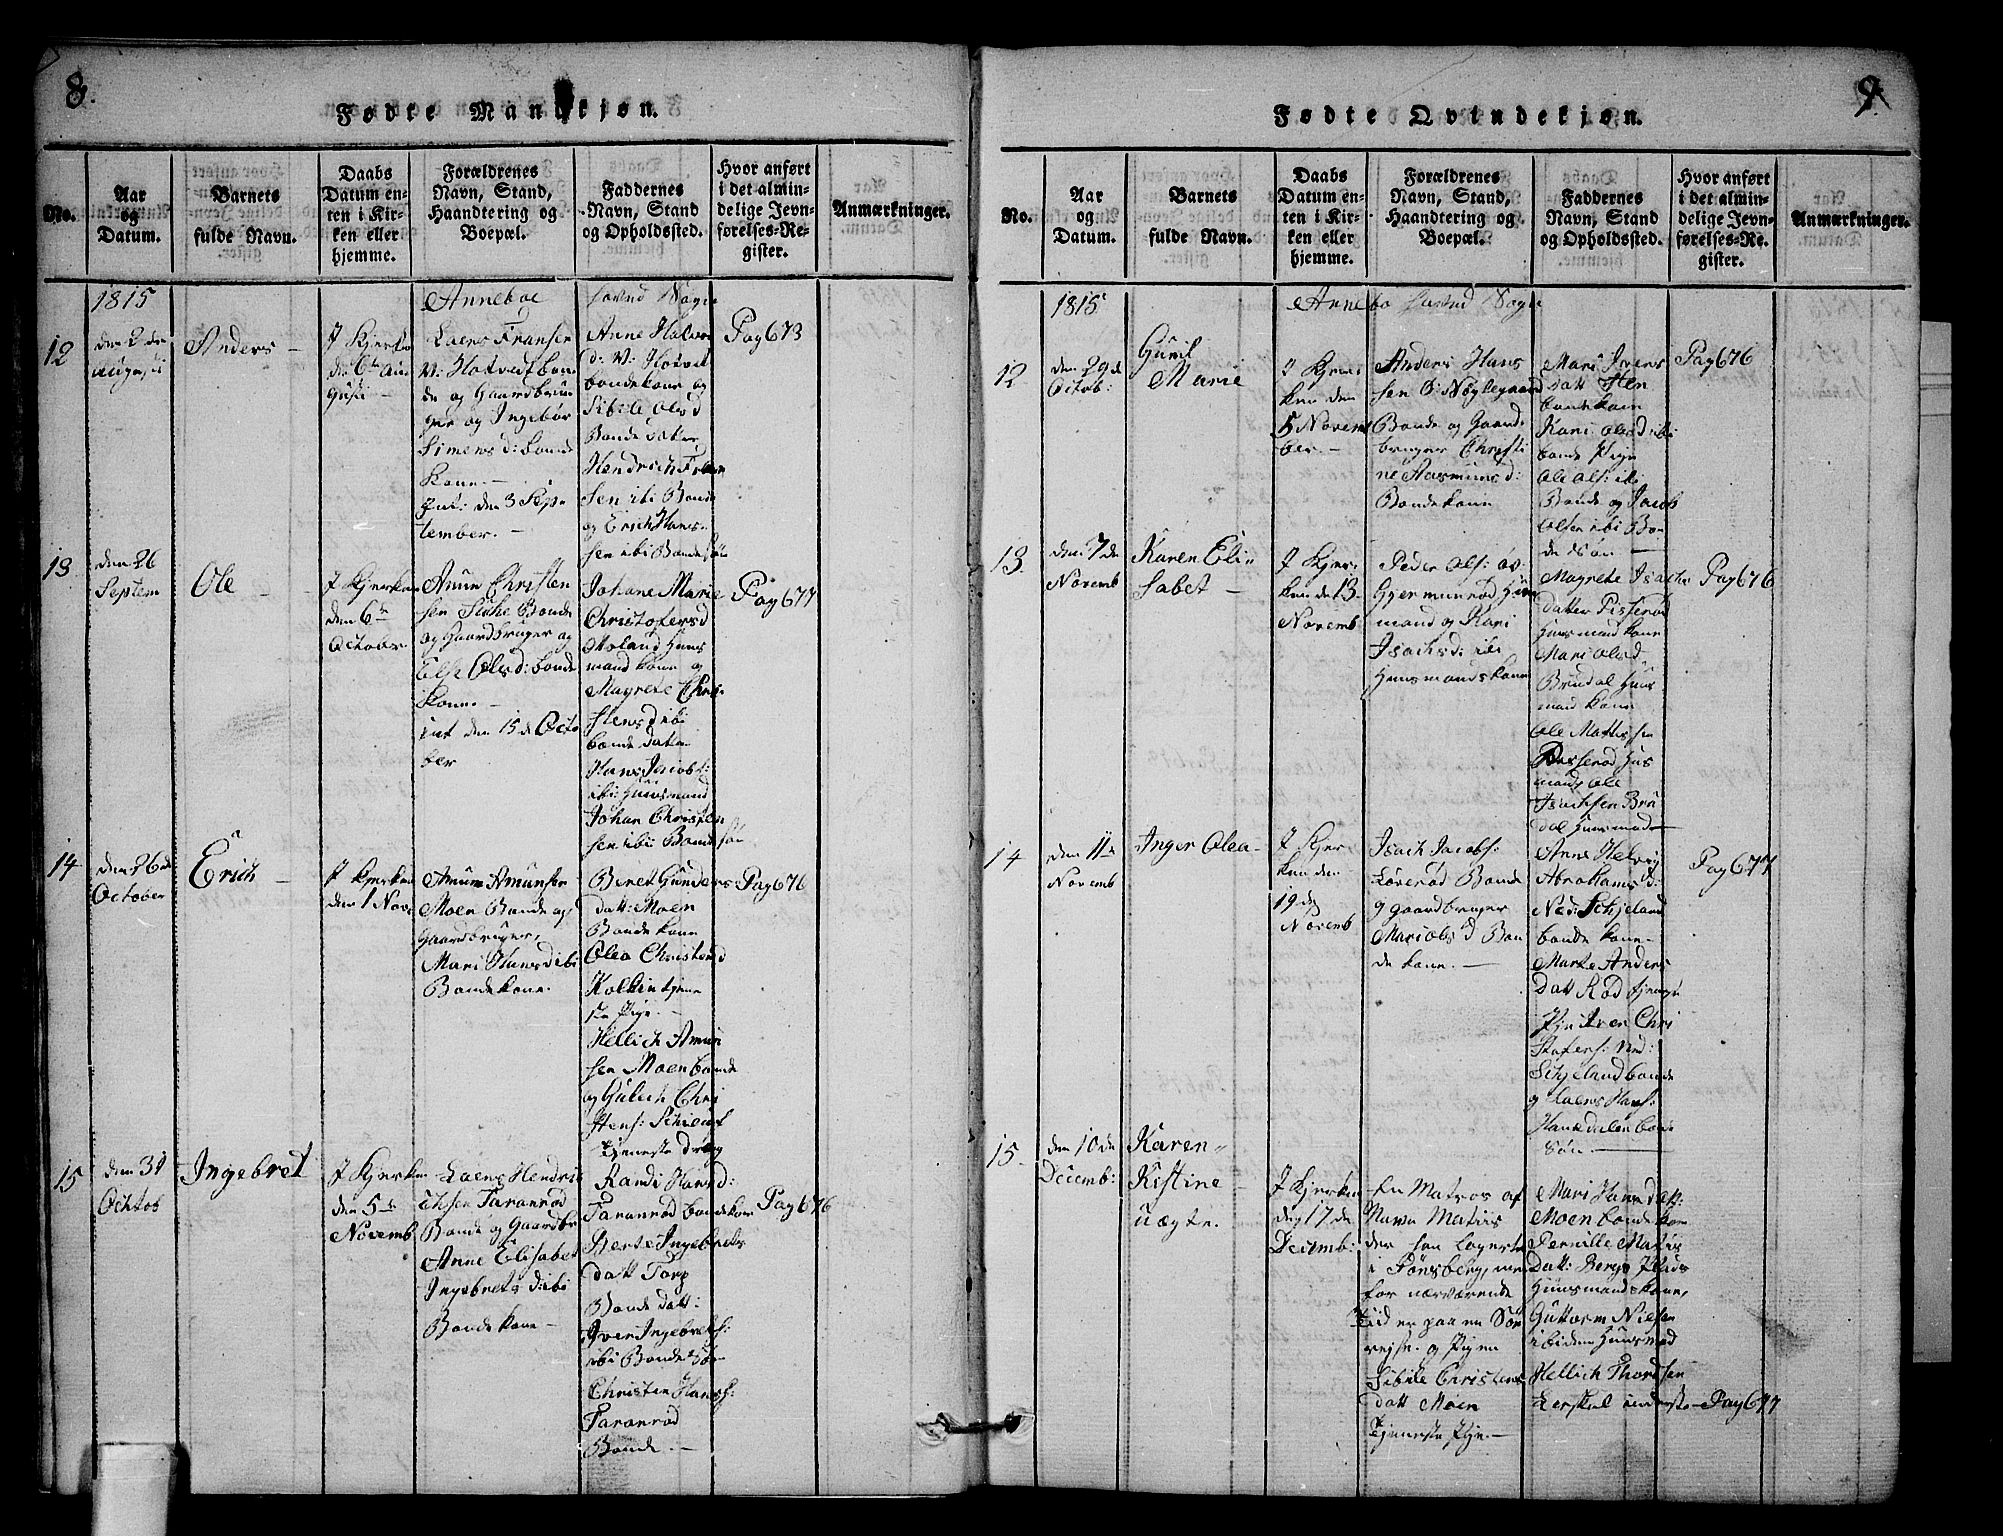 8.
Fødte Mandkjøn.
No.
Aar
og
Datum.
Barnets
fulde Navn.
Daabs
Datum en-
ten i Kir-
ken eller
hjemme.
Forældrenes
Navn, Stand,
Haandtering og
Boepæl.
Faddernes
Navn, Stand
og Opholdssted.
Hvor anført
i det almin-
delige Jevn-
førelses-Re-
gister.
Anmærkninger.
1815
Anneboe
hoved Sogn
12
den 2 de
Augusti
Anders
J Kjerken
den 6te Au
gusti
Laers Fransen
V: Hotvedt bon
de og Gaardbru
ger og Ingebor
Simensd: bonde
Kone.
Int: den 3 Sep
tember.
Anne Halvor
d: V: Hotvet
bondekone og
Sibile Olsd
Bonde datter
Hendrich Fran
sen ibi Bonde
og Erich Hans
sen ibi Bondesøn
Pag 673
13
den 26
Septem
Ole
J Kjerken
den 6te
October
Amun Christen
sen Bonde
og Gaardbruger og
Else Olsd: bonde
Kone.
int den 15 de Octo
ber
Johane Marie
Christofersd
Moland Huus
mand kone og
Magrete Chri
stensd ibi
bonde datter
Hans Jacobs:
ibi Huusmand
Johan Christen
sen ibi Bondesøn
Pag 677
14
den 26 de
October
Erich
J Kjerken
den 1 Nove
Amun Amunsen
Moen Bonde og
Gaardbruger,
Mari Hansd ibi
Bondekone.
Beret Gunders
datt: Moen
Bonde kone
Olea Christensd
Kolkin tjene
ste Pige.
Hellich Amun
sen Moen bonde
og Gulich Chri
stens:
tjeneste dreng
Pag 676
15
den 31
Ochtob
Ingebret
J Kjerken
den 5te
Novemb
Laers Hendri
chsen Taranrød
Bonde og Gaardbr
Anne Elisabet
Ingebretsd ibi
Bonde kone
Randi Hansd:
Taranrød bondekone
Berte Ingebrets
datt Torp
Bonde datt:
Iver Ingebrets:
ibi Bonde søn
Christen Hans:
Taranrød
Bonde.
Pag 676
9.
Fødte Qvindekjøn.
No.
Aar
og
Datum.
Barnets
fulde Navn.
Daabs
Datum en-
ten i Kir-
ken eller
hjemme.
Forældrenes
Navn, Stand,
Haandtering og
Boepæl.
Faddernes
Navn, Stand
og Opholdssted.
Hvor anført
i det almin-
delige Jevn-
førelses-Re-
gister.
Anmærkninger.
1815
Annebo hoved Sogn
12
den 29 de
Octob:
Guril
Marie
J Kjer
ken den
5 Novem
ber.
Anders Hans
sen Ø: Nøglegaard
Bonde og Gaard
bruger Christi
ne Aasmunsd:
Bondekone
Mari Ivers
datt Sten
bondekone
Kari Olsd ibi
bonde Pige
Ole Ols: ibi
Bonde og Jacob
Olsen ibi Bon
de søn
Pag 676
13.
den 7 de
Novemb
Karen Eli
sabet
J Kjer
ken de 13
Novemb
Peder Ols: øv:
Gjermunrød Huus
mand og Kari
Isachsd: ibi
Huusmandskone
Magrete Isachs
datter Pisserød
Huusmand kone
Mari Olsd
Brudal Huus
mand kone
Ole Mattissen
Pesserød Huus
mand, Ole
Isachsen Bru
dal Huusmand
Pag 676
14
den 11 te
Novemb
Inger Olea
J Kjer
ken den
19 de
Novemb
Isach Jacobs:
Løverød Bonde
og Gaardbruger
Mari Ols d Bon
de kone.
Anne Helvig
Abrahamsd:
Ned: Schjeland
bonde kone
Marte Anders
Datt Rød tjeneste
Pige Iver Chri
stofers: Ned:
Schjelnud bonde
og Laers Hans:
Hanedalen bonde
søn.
Pag 677
15.
den 10 de
Decemb:
Karen
Kistine
uægte.
J Kjerken
den 17 de
Decemb:
En Matros af
Navn Matis
der har Logeste
i Tønsberg, men
for nærværende
tiid er paa en Sø
rejse. og Pigen
Sibile Christens
datt Moen
tjeneste Pige.
Mari Hansdatt:
Moen bonde kone
Pernille Matis
datt: Berge Plads
Huusmandskone,
Guttorm Nielsen
ibidem Huusmand
Hellich Thordsen
Lerskal
Pag 677